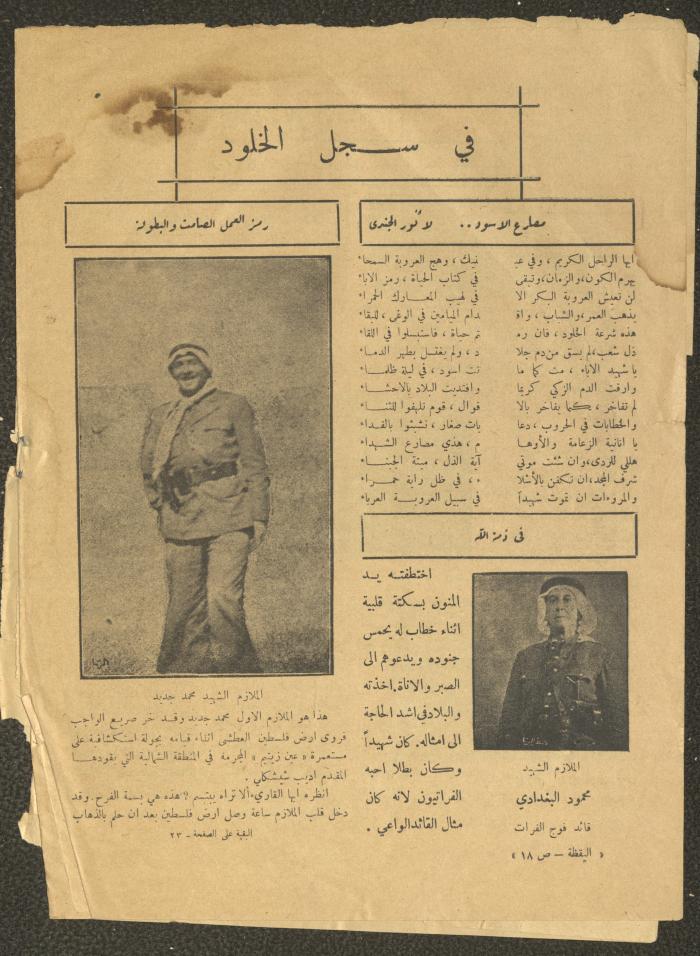 في سجل الخلود
مصارع الاسود .. لانور الجندى
ايها الراحل الكريم ، وفي عيـ نيك ، وهج العروبة السمحاء
يهرم الكون، والزمان، وتبقى في كتاب الحياة ، رمز الاباء
لن تعيش العروبة البكر الا في لهيب المعارك الحمراء
يذهب العمر، والشباب ، واقـ دام الميامين في الوغى ، للبقاء
هذه شرعة الخلود ، فان رمـ تم حياة ، فاستبسلوا في اللقاء
ذل شعب، لم يسق من دم جلا د ، ولم يغتسل بطهر الدماء
يا شهيد الاباء ، مت كما ما تت اسود ، في ليلة ظلماء
وارقت الدم الزكي كريما وافتديت البلاد بالاحشاء
لم تفاخر ، كما يفاخر بالا قوال ، قوم تلهفوا للثناء
والخطابات في الحروب ، دعا يات صغار ، تشبثوا بالقداء
يا انانية الزعامة والأوها م ، هذي مصارع الشهداء
هللي للردى، وان شئت موتي آية الذل ، ميتة الجبناء
شرف المجد، ان تكفن بالأشلا ء ، في ظل راية حمراء
والمروءات ان تموت شهيداً في سبيل العروبة العرباء
فى ذمة الله
اختطفته يد
المنون بسكتة قلبية
اثناء خطاب له يحمس
جنوده ويدعوهم الى
الصبر والاناة. اخذته
والبلاد في اشد الحاجة
الى امثاله. كان شهيداً
وكان بطلا احبه
الفراتيون لانه كان
مثال القائد الواعي .
الملازم الشهيد
محمود البغدادي
قائد فوج الفرات
« اليقظة – ص ١٨ »
رمز العمل الصامت والبطولة
الملازم الشهيد محمد جديد
هذا هو الملازم الاول محمد جديد وقد خر صريع الواجب
فروى ارض فلسطين العطشى اثناء قيامه بجولة استكشافية على
مستعمرة « عين زيتيم » المجرمة في المنطقة الشمالية التي يقودها
المقدم اديب شيشكلي .
انظره ايها القارىء الا تراه يبتسم ؟ هذه هي بسمة الفرح . وقد
دخل قلب الملازم ساعة وصل ارض فلسطين بعد ان حلم بالذهاب
البقية على الصفحة – ٢٣